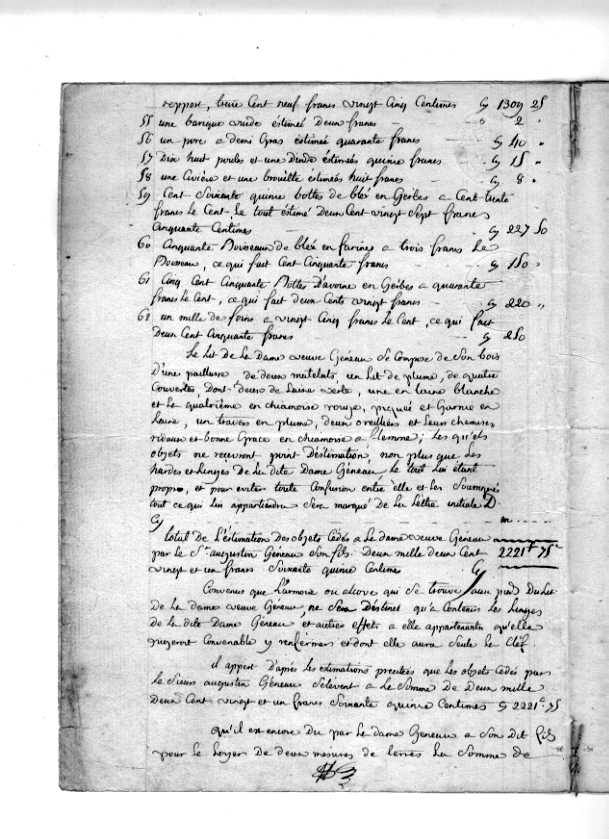 report, treize Cent neuf francs vingt Cinq Centimes 1309 25
55 une barique vuide estimée deux francs 2 "
56 un porc a demi Gras estimée quarante francs 40 "
57 Dix huit poules et une Dinde estimées quinze francs 15 "
58 une Civiere et une brouitte estimées huit francs 8 "
59 Cent Soixante quinze bottes de bled en Gerbes a Cent trente
francs le Cent. Le tout estimé Deux Cent vingt Sept francs
Cinquante Centimes 227 50
60 Cinquante Boisseaux de bled en farines a trois francs Le
Boisseau, ce qui fait Cent Cinquante francs 150 "
61 Cinq Cent Cinquante Bottes D'avoine en Gerbes a quarante
francs le Cent, ce qui fait deux Cents vingt francs 220 "
62 un mille de foins a vingt Cinq francs le Cent, ce qui fait
Deux Cent Cinquante francs 250
Le Lit de La Dame veuve Géneau Se Compose de Son bois
d'une paillasse de deux matelats un Lit de plume, de quatre
Couvertes Dont deux de Laine verte, une en laine blanche
et La quatrième en chiamoise rouge, piquée et Garnie en
Laine, un travers en plume, deux oreilliers et Leurs chemises,
rideaux et bonne Grace en chiamoise a flamme; Les quels
objets ne reçevront point D'éstimation, non plus que Les
hardes et Linges De La dite Dame Géneau, le tout Lui étant
propre, et pour eviter toute Confusion entre elle et Les Soussignés
tout ce qui Lui appartiendra Sera marqué de La Lettre initiale D.
Cy
total De L'éstimation Des objets Cédés a La dame veuve Géneau
par le Sr augustin Géneau Son fils Deux mille deux Cent 2221f 75c
vingt et un francs Soixante quinze Centimes
Convenus que L'armoire ou alcove qui Se trouve aux pied Du Lit
De La dame veuve Géneau, ne Sera Déstinée qu'a Contenir Les Linges
de La dite Dame Géneau et autres effets a elle appartenants qu'elle
jugeront Convenable y renfermer et dont elle aura Seule La Clef.
il appert D'après Les estimations précitées que Les objets Cédés par
Le Sieur augustin Géneau S'élevent a La Somme De Deux mille
Deux Cent vingt et un francs Soixante quinze Centimes 2221f 75
qu'il est encore Du par La dame Géneau a Son Dit fils
pour Le Loyer De deux mesures de terres La Somme de